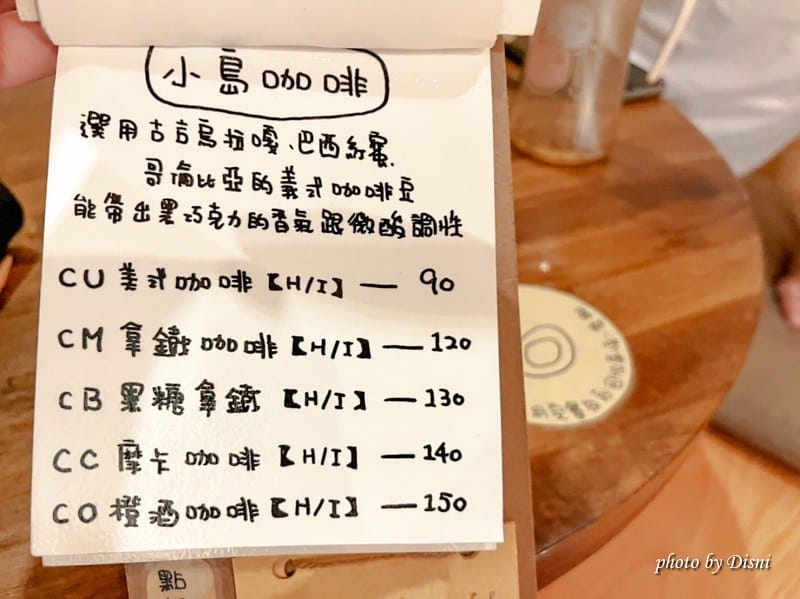 小島咖啡
選用古吉烏拉嘎、巴西紅蜜、
哥倫比亞的義式咖啡豆
能帶出黑巧克力的香氣跟微酸調性
CU 美式咖啡【H/I】— 90
CM 拿鐵咖啡【H/I】— 120
CB 黑糖拿鐵【H/I】— 130
CC 摩卡咖啡【H/I】— 140
CO 橙酒咖啡【H/I】— 150
點
photo by Disni